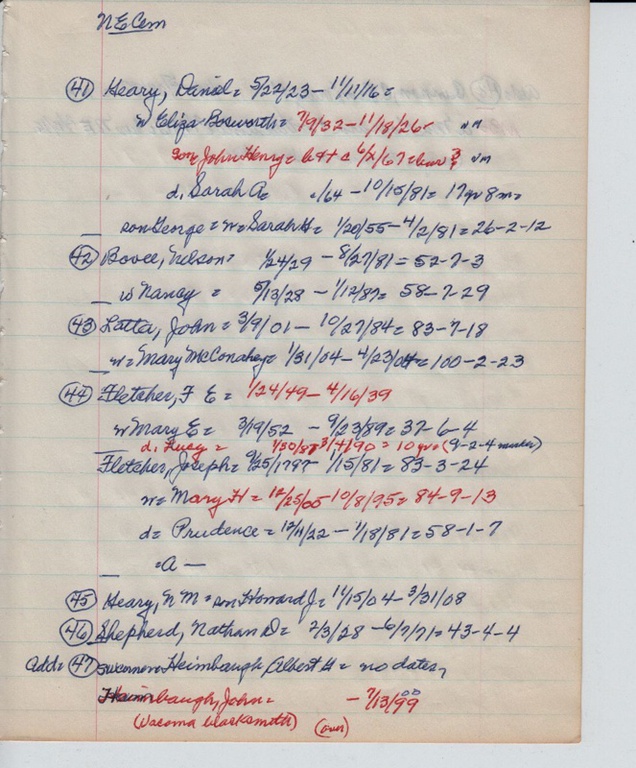 NE Cem
(41) Heary, Daniel = 5/22/23 - 11/11/16 =
w Eliza Bosworth = 7/9/32 - 11/18/26
son John Henry =
d. Sarah A = /64 - 10/15/81 = 17 yr 8 m =
son George = w = Sarah H = 1/20/55 - 4/2/81 = 26-2-12
(42) Bovee, Nelson = 1/24/29 - 8/27/81 = 52-7-3
w Nancy = 5/13/28 - 1/12/87 = 58-7-29
(43) Latta, John = 3/9/01 - 10/27/84 = 83-7-18
w = Mary McConahey = 1/31/04 - 4/23/04 = 100-2-23
(44) Fletcher, F E = 1/24/49 - 4/16/39
w Mary E = 3/19/52 - 9/23/89 = 37-6-4
d. Lucy = 1/30/8 3/4/90 = 10 yrs (9-2-4 marker)
Fletcher, Joseph = 9/25/1797 - 1/15/81 = 83-3-24
w = Mary H = 12/25/05 - 10/8/95 = 84-9-13
d = Prudence = 12/11/22 - 1/18/81 = 58-1-7
= A —
(45) Heary, N M = son Howard J = 11/15/04 - 3/31/08
(46) Shepherd, Nathan D = 2/3/28 - 6/7/71 = 43-4-4
Add = (47) Heimbaugh, Albert H = no dates,
Heimbaugh, John = - 7/13/99 00
(Wacoma blacksmith) (over)